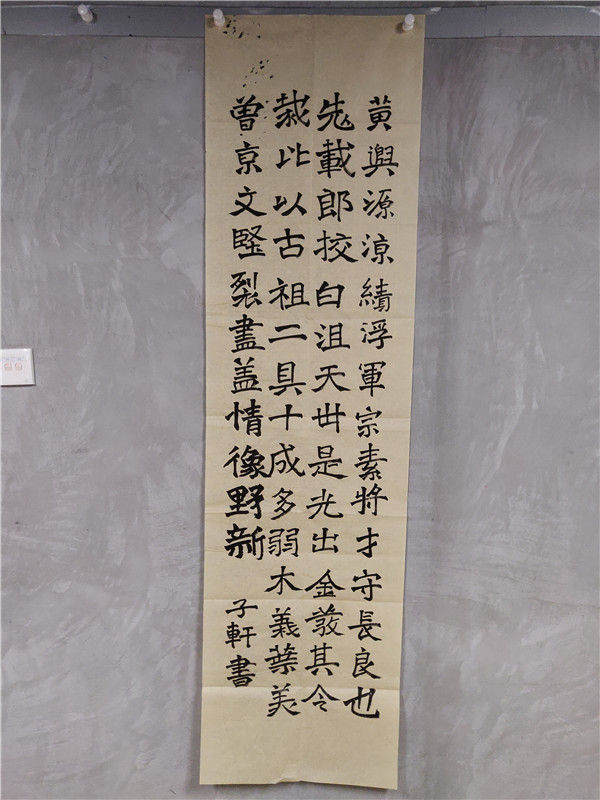 黄興源涼績浮軍宗素將才守長良也
先載郎挍白沮天丗是光出金敬其令
哉比以古祖二具十成多弱木義葉美
曾京文竪裂盡盖情像野新
子軒書